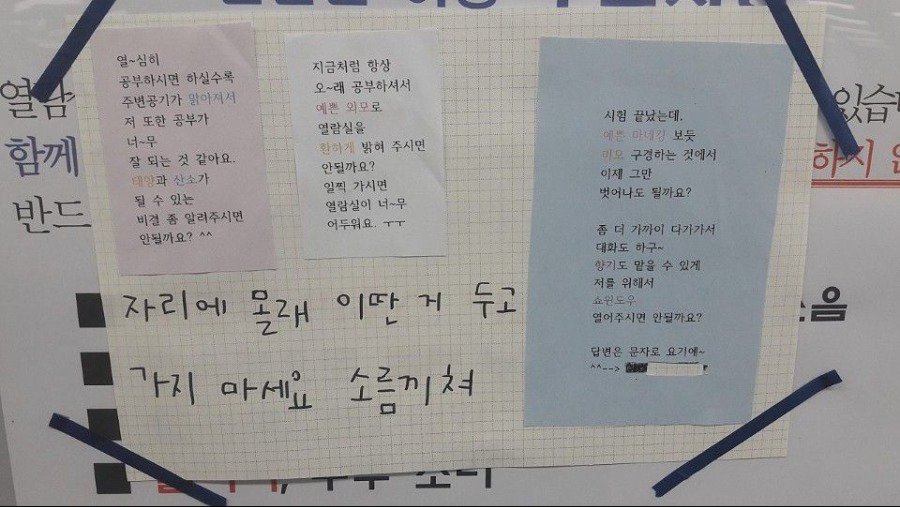 열~심히
공부하시면 하실수록
주변공기가 맑아져서
저 또한 공부가
너~무
잘 되는 것 같아요.
태양과 산소가
될 수 있는
비결 좀 알려주시면
안될까요? ^^
지금처럼 항상
오~래 공부하셔서
예쁜 외모로
열람실을
환하게 밝혀 주시면
안될까요?
일찍 가시면
열람실이 너~무
어두워요. ㅜㅜ
시험 끝났는데.
예쁜 마네킹 보듯
미모 구경하는 것에서
이제 그만
벗어나도 될까요?
좀 더 가까이 다가가서
대화도 하구~
향기도 맡을 수 있게
저를 위해서
쇼윈도우
열어주시면 안될까요?
답변은 문자로 요기에~
^^-->
자리에 몰래 이딴 거 두고
가지 마세요 소름끼쳐
열람
함께
반드
있습
하지
소음
소리